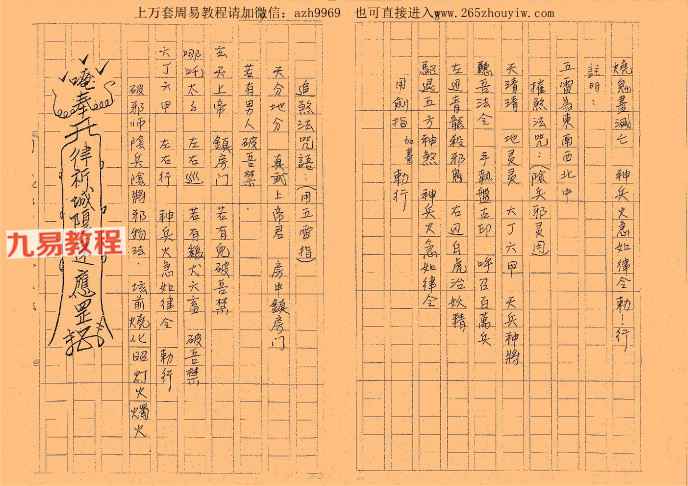 上万套周易教程请加微信：azh9969 也可直接进入www.265zhouyiw.com
燒鬼盡滅亡 神兵火急如律令 勅！行
註明：
五雷為東南西北中
摧煞法咒：(陰兵邪靈用
天清清 地灵灵 六丁六甲 天兵神將
聽吾法令 手執盤古印 呼召百萬兵
左迎青龍殺邪鬼 右迎白虎治妖精
驅退五方神煞 神兵火急如律令
用劍指 勅行
追煞法咒語(用五雷指)
天分地分 真武上帝君 房中鎮房门
若有男人破吾禁
玄天上帝 鎮房门 若有鬼破吾禁
哪吒太子 左右巡 若有貓犬六畜 破吾禁
六丁六甲 左右行 神兵火急如律令 勅行
破邪师陰兵陰將邪物法．坛前燒化 灯火燭火
奉 律祈城隍 應罡
九易教程